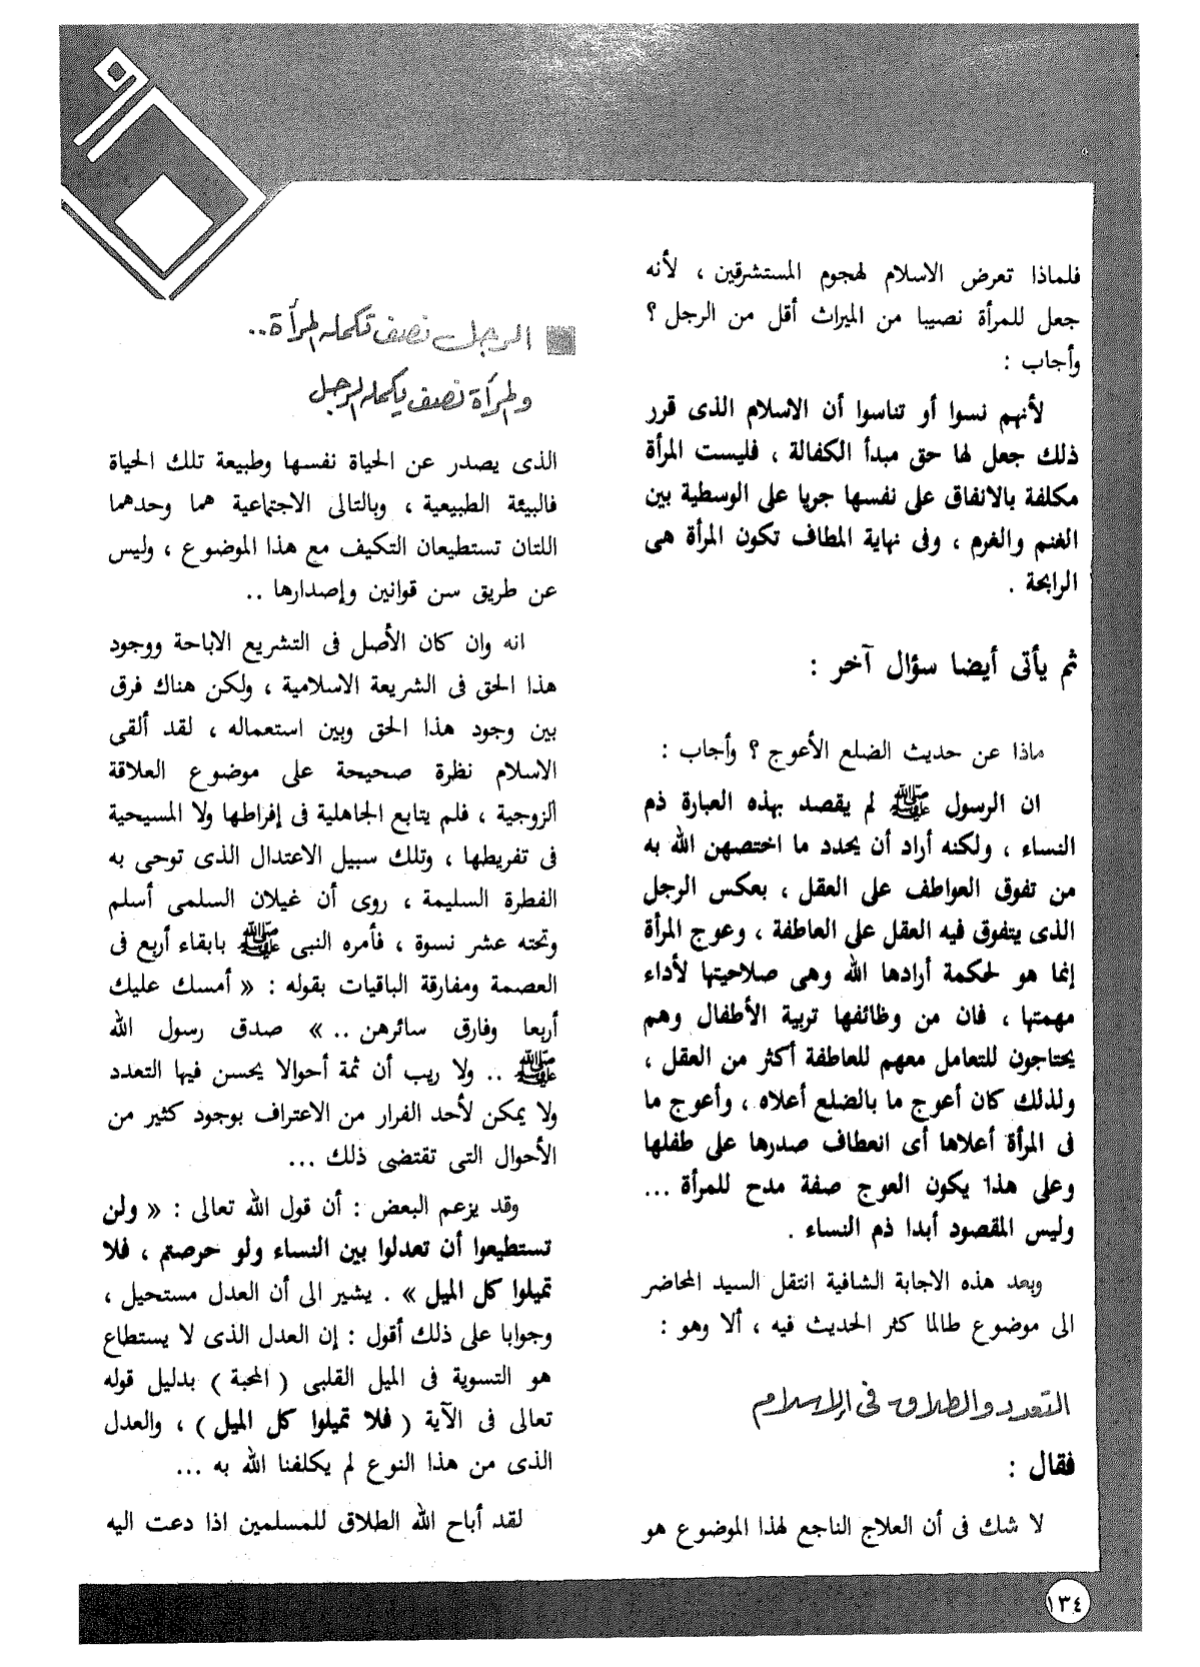 فلماذا تعرض الاسلام لهجوم المستشرقين ، لأنه
جعل للمرأة نصيبا من الميراث أقل من الرجل ؟
وأجاب :
لأنهم نسوا أو تناسوا أن الاسلام الذى قرر
ذلك جعل لها حق مبدأ الكفالة ، فليست المرأة
مكلفة بالانفاق على نفسها جريا على الوسطية بين
الغنم والغرم ، وفى نهاية المطاف تكون المرأة هى
الرابحة .
ثم يأتى أيضا سؤال آخر :
ماذا عن حديث الضلع الأعوج ؟ وأجاب :
ان الرسول ﷺ لم يقصد بهذه العبارة ذم
النساء ، ولكنه أراد أن يحدد ما اختصهن الله به
من تفوق العواطف على العقل ، بعكس الرجل
الذى يتفوق فيه العقل على العاطفة ، وعوج المرأة
إنما هو لحكمة أرادها الله وهى صلاحيتها لأداء
مهمتها ، فان من وظائفها تربية الأطفال وهم
يحتاجون للتعامل معهم للعاطفة أكثر من العقل ،
ولذلك كان أعوج ما بالضلع أعلاه ، وأعوج ما
فى المرأة أعلاها أى انعطاف صدرها على طفلها
وعلى هذا يكون العوج صفة مدح للمرأة ...
وليس المقصود أبدا ذم النساء .
وبعد هذه الاجابة الشافية انتقل السيد المحاضر
الى موضوع طالما كثر الحديث فيه ، ألا وهو :
التعدد والطلاق فى الإسلام
فقال :
لا شك فى أن العلاج الناجع لهذا الموضوع هو
الرجل نصف تكمله المرأة ..
والمرأة نصف يكمله الرجل
الذى يصدر عن الحياة نفسها وطبيعة تلك الحياة
فالبيئة الطبيعية ، وبالتالى الاجتماعية هما وحدهما
اللتان تستطيعان التكيف مع هذا الموضوع ، وليس
عن طريق سن قوانين وإصدارها ..
انه وان كان الأصل فى التشريع الاباحة ووجود
هذا الحق فى الشريعة الاسلامية ، ولكن هناك فرق
بين وجود هذا الحق وبين استعماله ، لقد ألقى
الاسلام نظرة صحيحة على موضوع العلاقة
الزوجية ، فلم يتابع الجاهلية فى إفراطها ولا المسيحية
فى تفريطها ، وتلك سبيل الاعتدال الذى توحى به
الفطرة السليمة ، روى أن غيلان السلمى أسلم
وتحته عشر نسوة ، فأمره النبى ﷺ بابقاء أربع فى
العصمة ومفارقة الباقيات بقوله : « أمسك عليك
أربعا وفارق سائرهن .. » صدق رسول الله
ﷺ .. ولا ريب أن ثمة أحوالا يحسن فيها التعدد
ولا يمكن لأحد الفرار من الاعتراف بوجود كثير من
الأحوال التى تقتضى ذلك ...
وقد يزعم البعض : أن قول الله تعالى : « ولن
تستطيعوا أن تعدلوا بين النساء ولو حرصتم ، فلا
تميلوا كل الميل » . يشير الى أن العدل مستحيل ،
وجوابا على ذلك أقول : إن العدل الذى لا يستطاع
هو التسوية فى الميل القلبى ( المحبة ) بدليل قوله
تعالى فى الآية ( فلا تميلوا كل الميل ) ، والعدل
الذى من هذا النوع لم يكلفنا الله به ...
لقد أباح الله الطلاق للمسلمين اذا دعت اليه
١٣٤